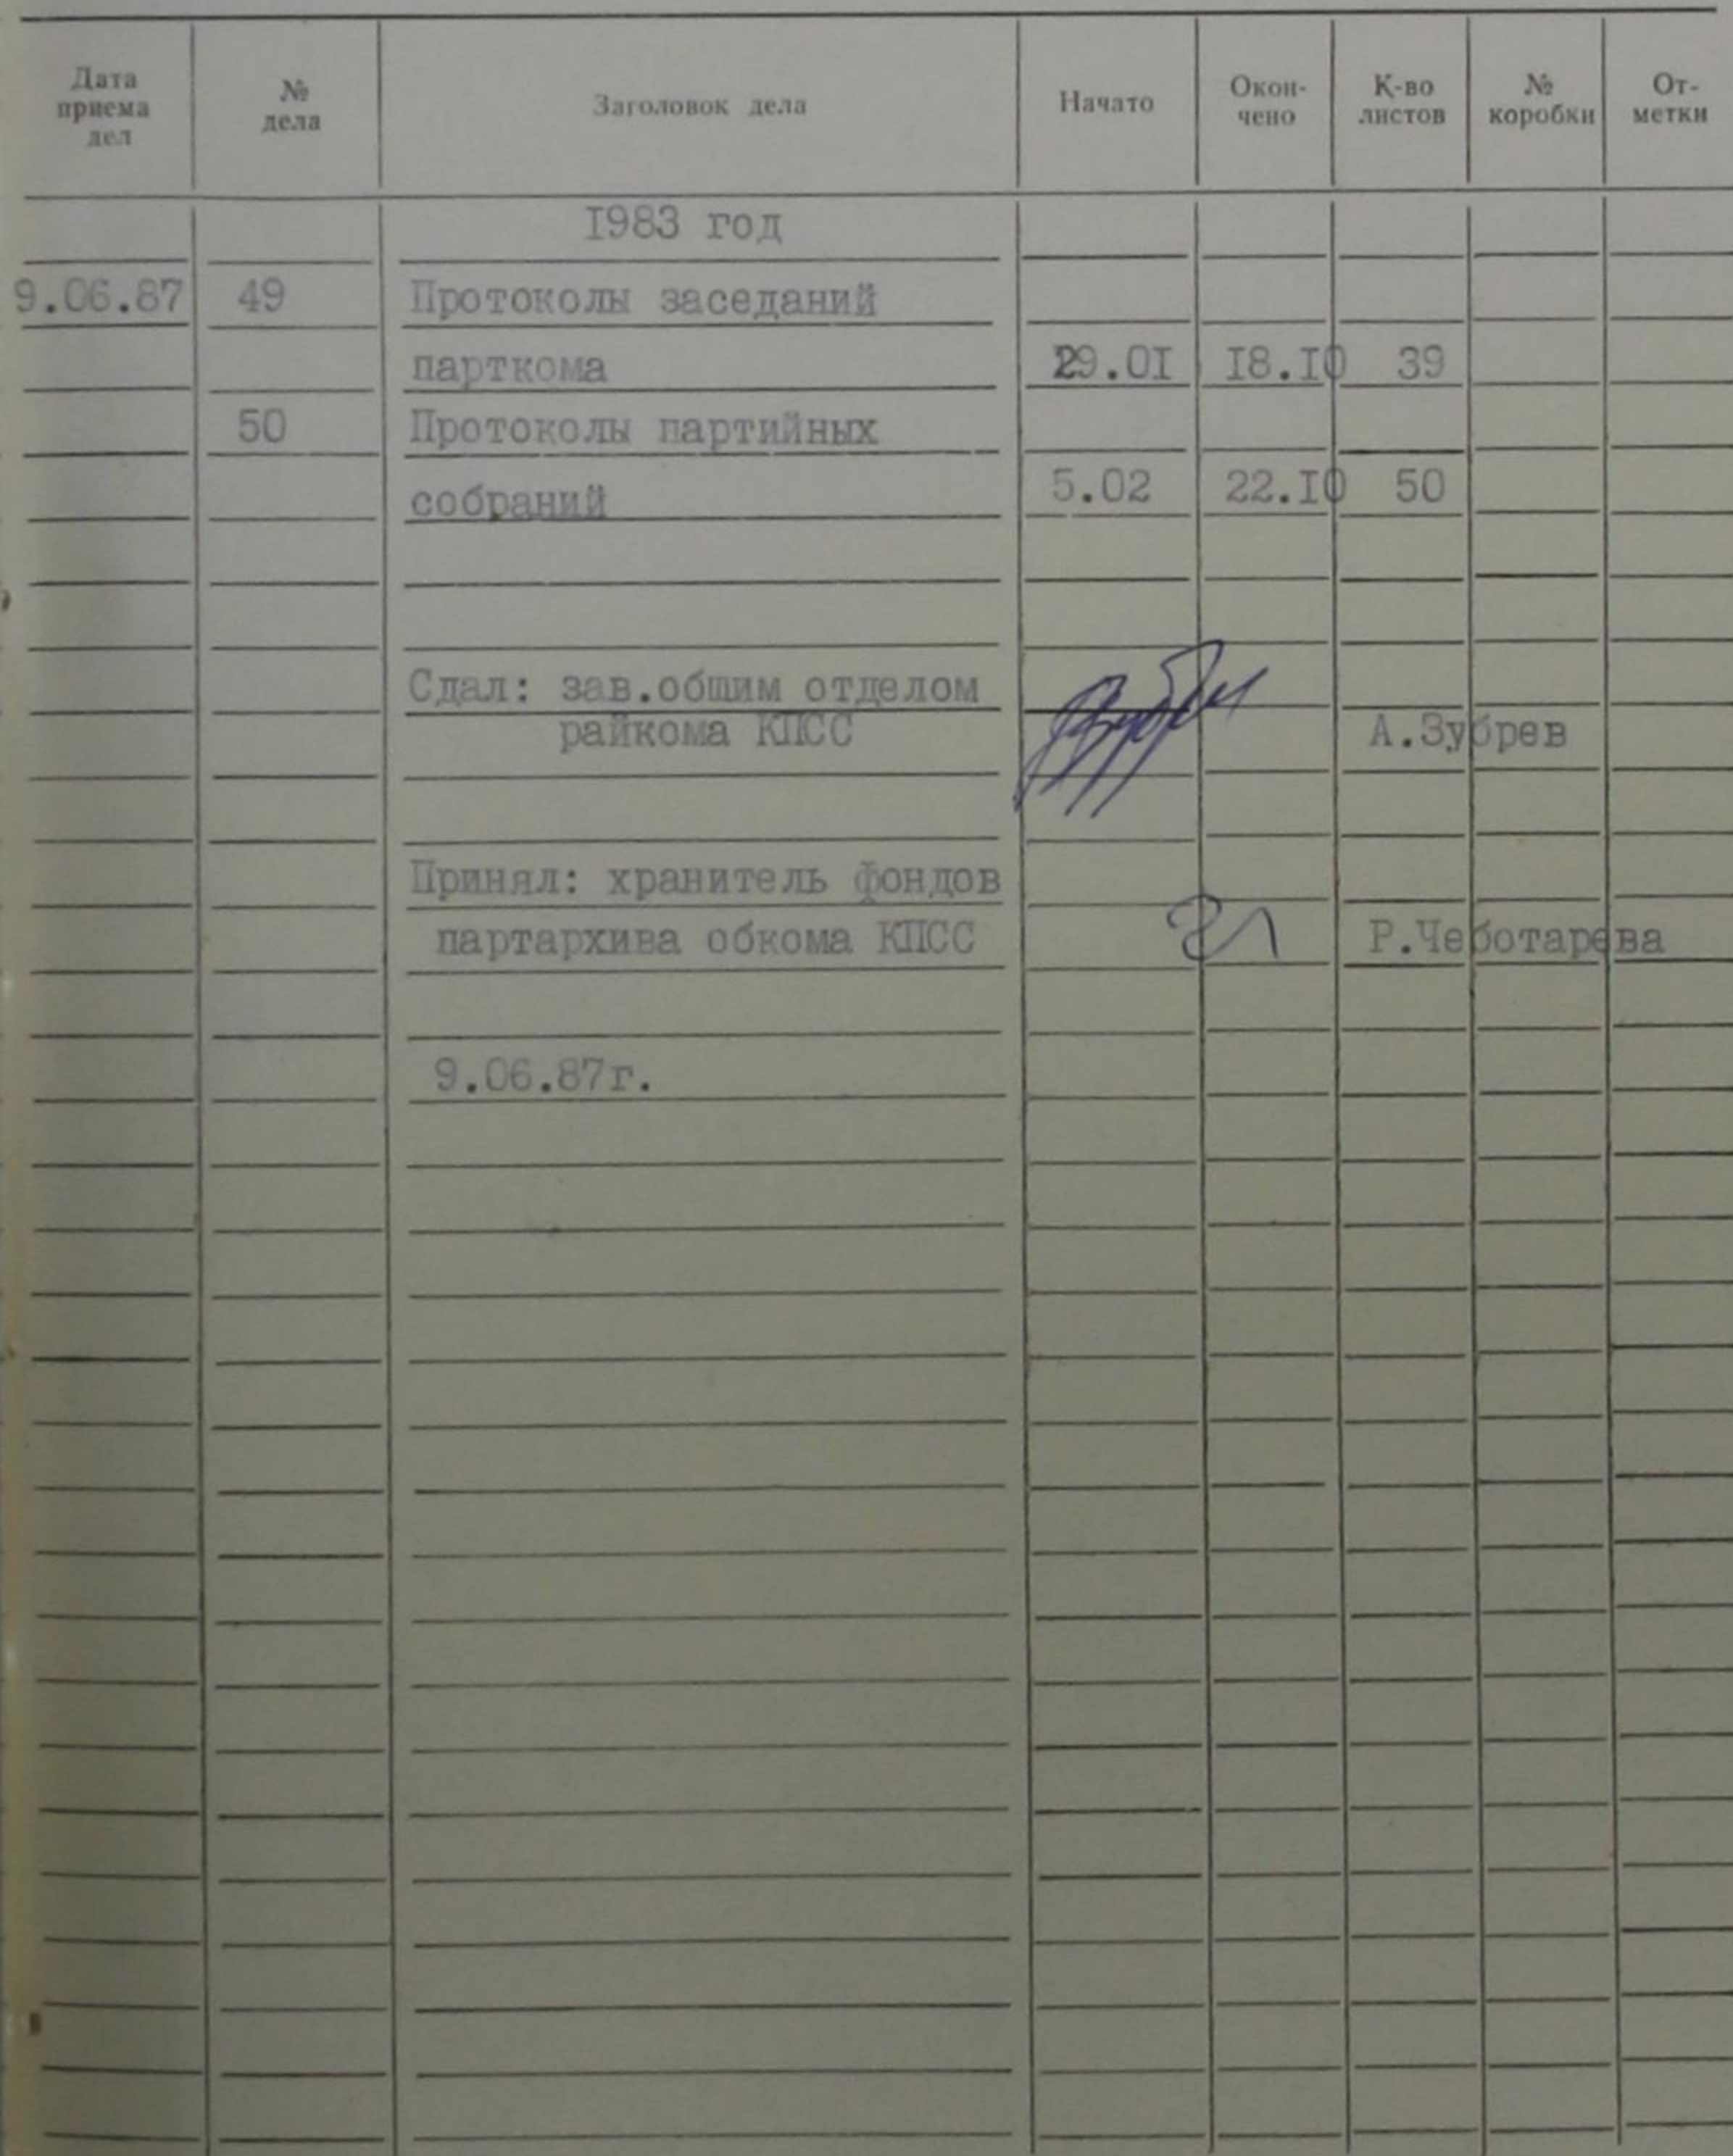 Дата приема дел № дела Заголовок дела Начато Окон-чено К-во листов № коробки От-метки
1983 год
9.06.87 49 Протоколы заседаний
парткома 29.01 18.10 39
50 Протоколы партийных
собраний 5.02 22.10 50
Сдал: зав.общим отделом
райкома КПСС А.Зубрев
Принял: хранитель фондов
партархива обкома КПСС Р.Чеботарева
9.06.87г.